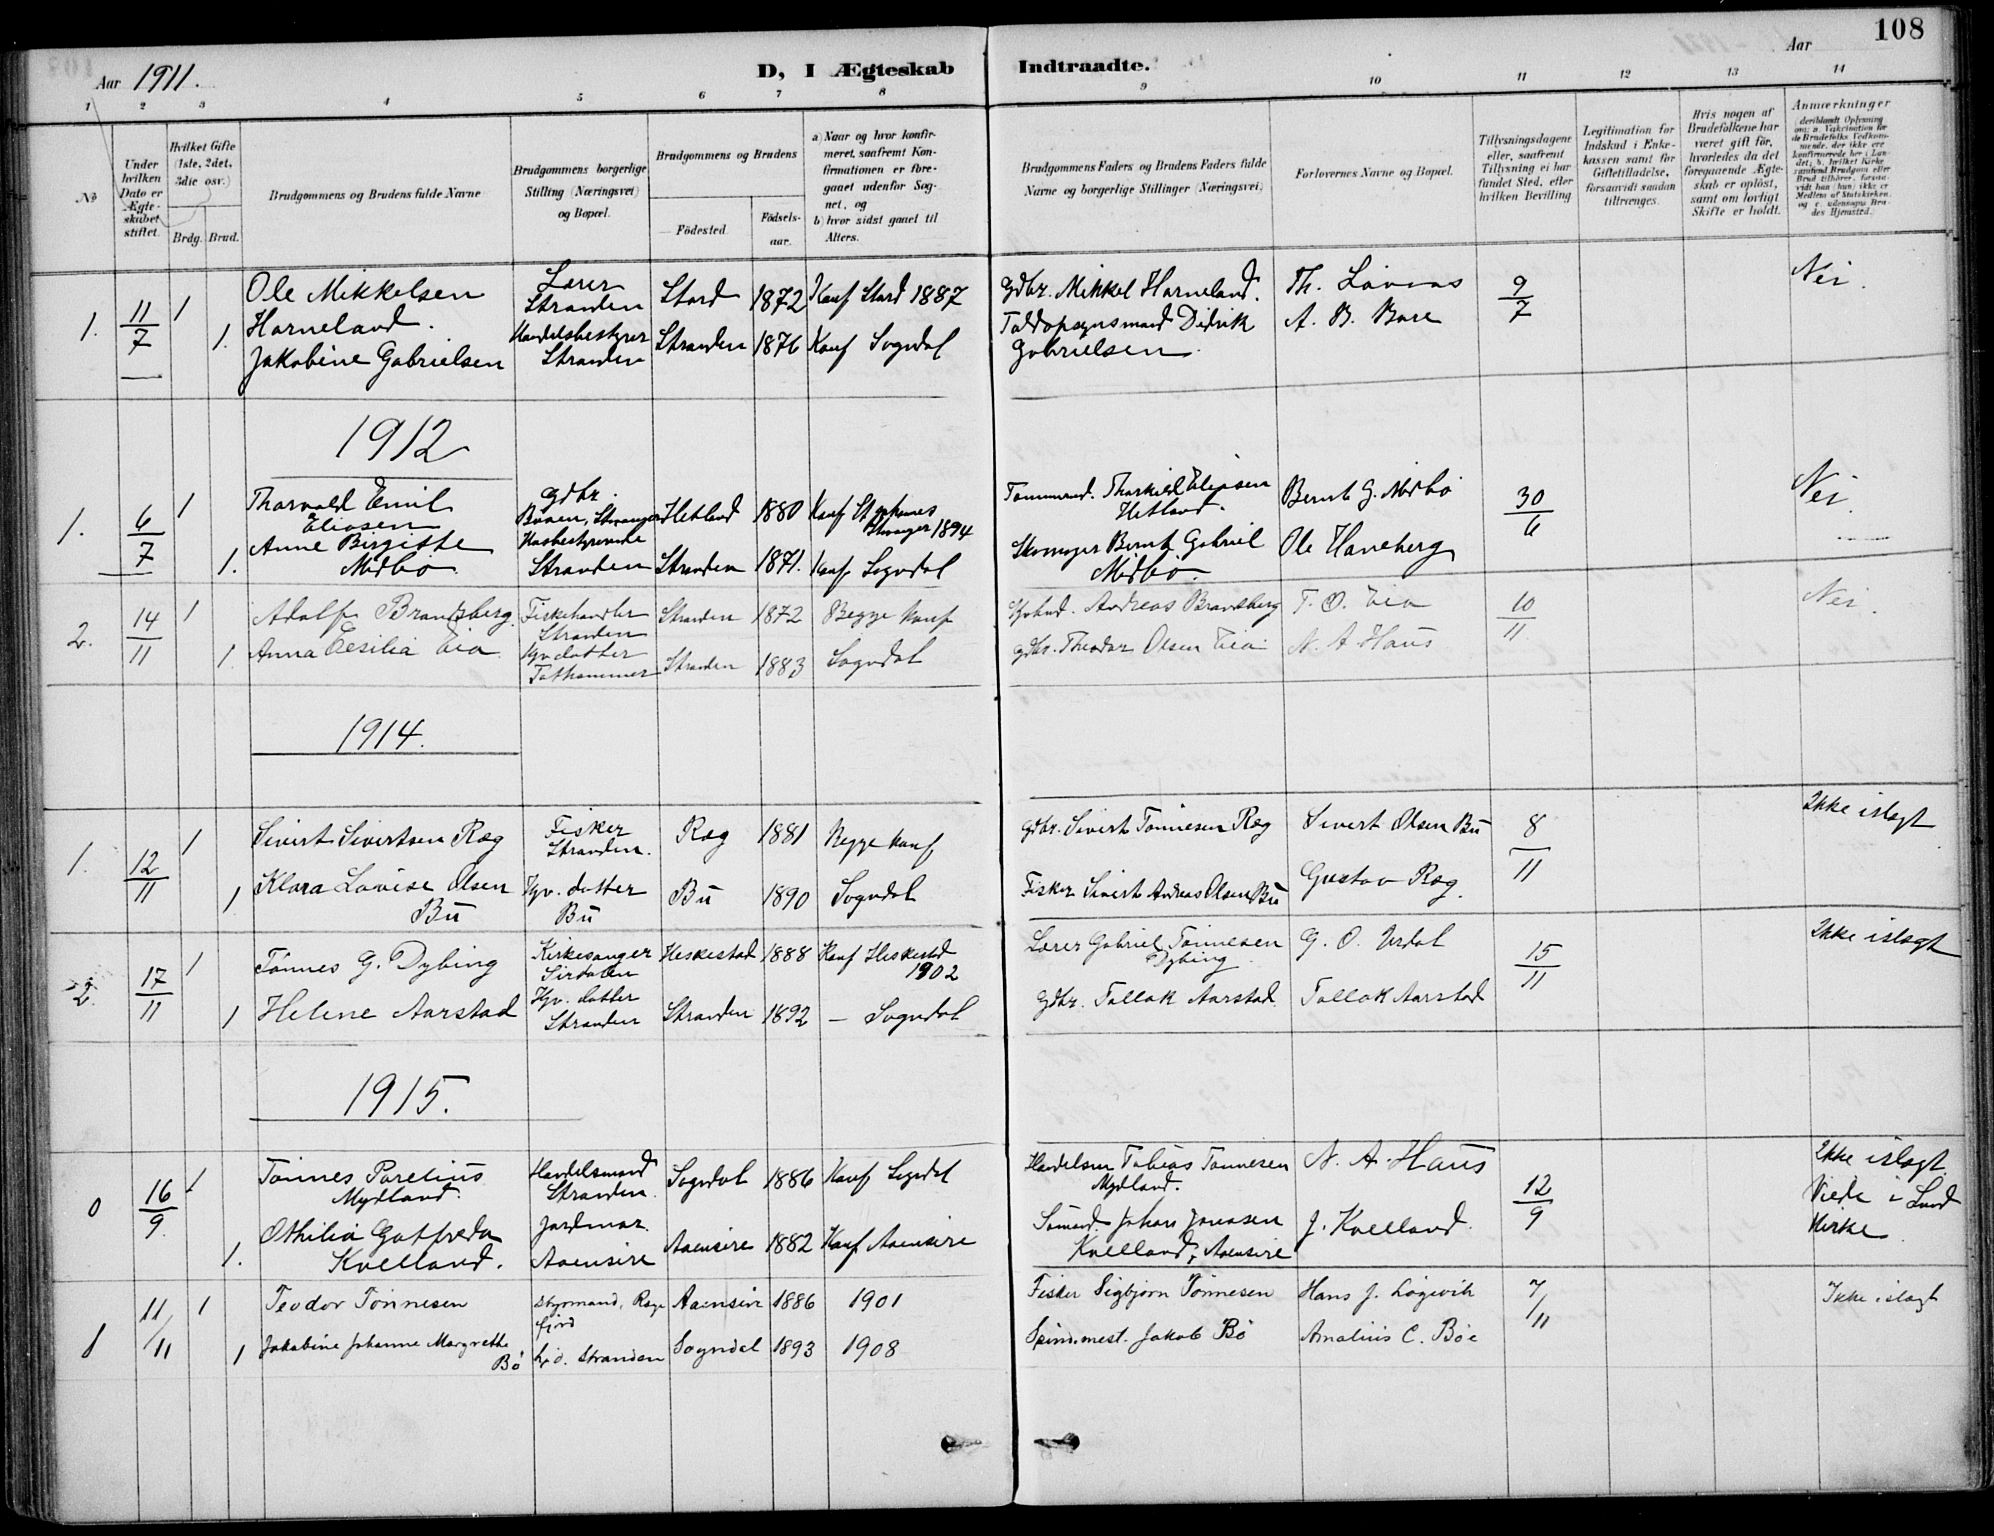 108
Aar 1911.
D, I Ægteskab Indtraadte.
Aar
1 2 3 4 5 6 7 8 9 10 11 12 13 14
№
Under hvilken Dato er Ægteskabet stiftet.
Hvilket Gifte (1ste, 2det, 3die osv.)
Brdg. Brud.
Brudgommens og Brudens fulde Navne
Brudgommens borgerlige Stilling (Næringsvei) og Bopæl.
Brudgommens og Brudens
Födested.
Födselsaar.
a) Naar og hvor konfirmeret, saafremt Konfirmationen er foregaaet udenfor Sognet, og
b) hvor sidst gaaet til Alters.
Brudgommens Faders og Brudens Faders fulde Navne og borgerlige Stillinger (Næringsvei)
Forlovernes Navne og Bopæl.
Tillysningsdagene eller, saafremt Tillysning ei har fundet Sted, efter hvilken Bevilling
Legitimation for Indskud i Enkekassen samt for Giftetilladelse, forsaavidt saadan tiltrænges.
Hvis nogen af Brudefolkene har været gift før, hvorledes da det foregaaende Ægteskab er opløst, samt om lovligt Skifte er holdt.
Anmærkninger
1. 11/7 1 1.
Ole Mikkelsen
Horneland.
Jakobine Gabrielsen
Lærer
Stranden
Handelsbestyrer
Stranden
Stord 1872 Konf Stord 1887
Stranden 1876 Konf Sogndal
Gdbr. Mikkel Horneland.
Toldopsynsmand Didrik
Gabrielsen
Th. Lövaas
A. B. Bore
9/7
Nei.
1912
1. 6/7 1 1.
Thorvald Emil
Eliasen
Anne Birgitte
Midbø
Gdbr.
Husbestyrerinde
Stranden
Hetland 1880 Konf St. Johannes
Stvanger 1894
Stranden 1871. Konf Sogndal
Tømmermd. Thorkild Eliasen
Hetland.
Skomager Bernt Gabriel
Midbø.
Bernt G. Midbø
Ole Haneberg
30/6
Nei.
2. 14/11 1 1.
Adolf Brandsberg.
Anna Cesilia Eia
Fiskehandler
Stranden
Hgv. datter
Stranden 1872 Begge konf
Stranden 1883 Sogndal
Andreas Brandsberg
Gdbr. Theodor Olsen Eia
T. O. Eia
N. A. Haus
10/11
Nei.
1914.
1. 12/11 1 1
Sivert Sivertsen Ræg
Klara Lovise Olsen
Bu
Fisker
Stranden.
Hgv. datter
Bu
Ræg 1881 Begge konf
Bu 1890 Sogndal
Gdbr. Sivert Tønnesen Ræg
Fisker Sivert Andreas Olsen Bu
Sivert Olsen Bu
Gustav Ræg.
8/11
Ikke islægt
2. 17/11 1 1
Tønnes G. Dybing
Helene Aarstad
Kirkesanger
Sirdalen
Hgv. datter
Stranden
Heskestad 1888 Konf Heskestad
1902
Stranden 1892 — Sogndal
Lærer Gabriel Tønnesen
Dybing
Gdbr. Tollak Aarstad
G. O. Urdal
Tollak Aarstad
15/11
Ikke islægt
1915.
0 16/9. 1 1.
Tønnes Parelius
Mydland.
Othilia Gotfreda
Kvelland.
Handelsmand
Stranden.
Jordmor.
Aaensire
Sogndal 1886 Konf Sogndal
Aaensire 1882 Konf Aaensire
Handelsm Tobias Tønnesen
Mydland.
Sømand. Johan Jonassen
Kvelland, Aaensire
N. A. Haus
J. Kvelland.
12/9
Ikke islægt
Viede i Lund
Kirke
1 11/11 1 1
Teodor Tönnesen
Jakobine Johanne Margrethe
Bö
Styrmand, Rægefjord
Stranden
Aaensire 1886 1901
Sogndal 1893 1908
Fisker Sigbjörn Tönnesen
Spind.mest. Jakob Bö
Hans J. Løgevik
Amalius C. Böe
7/11
Ikke islægt